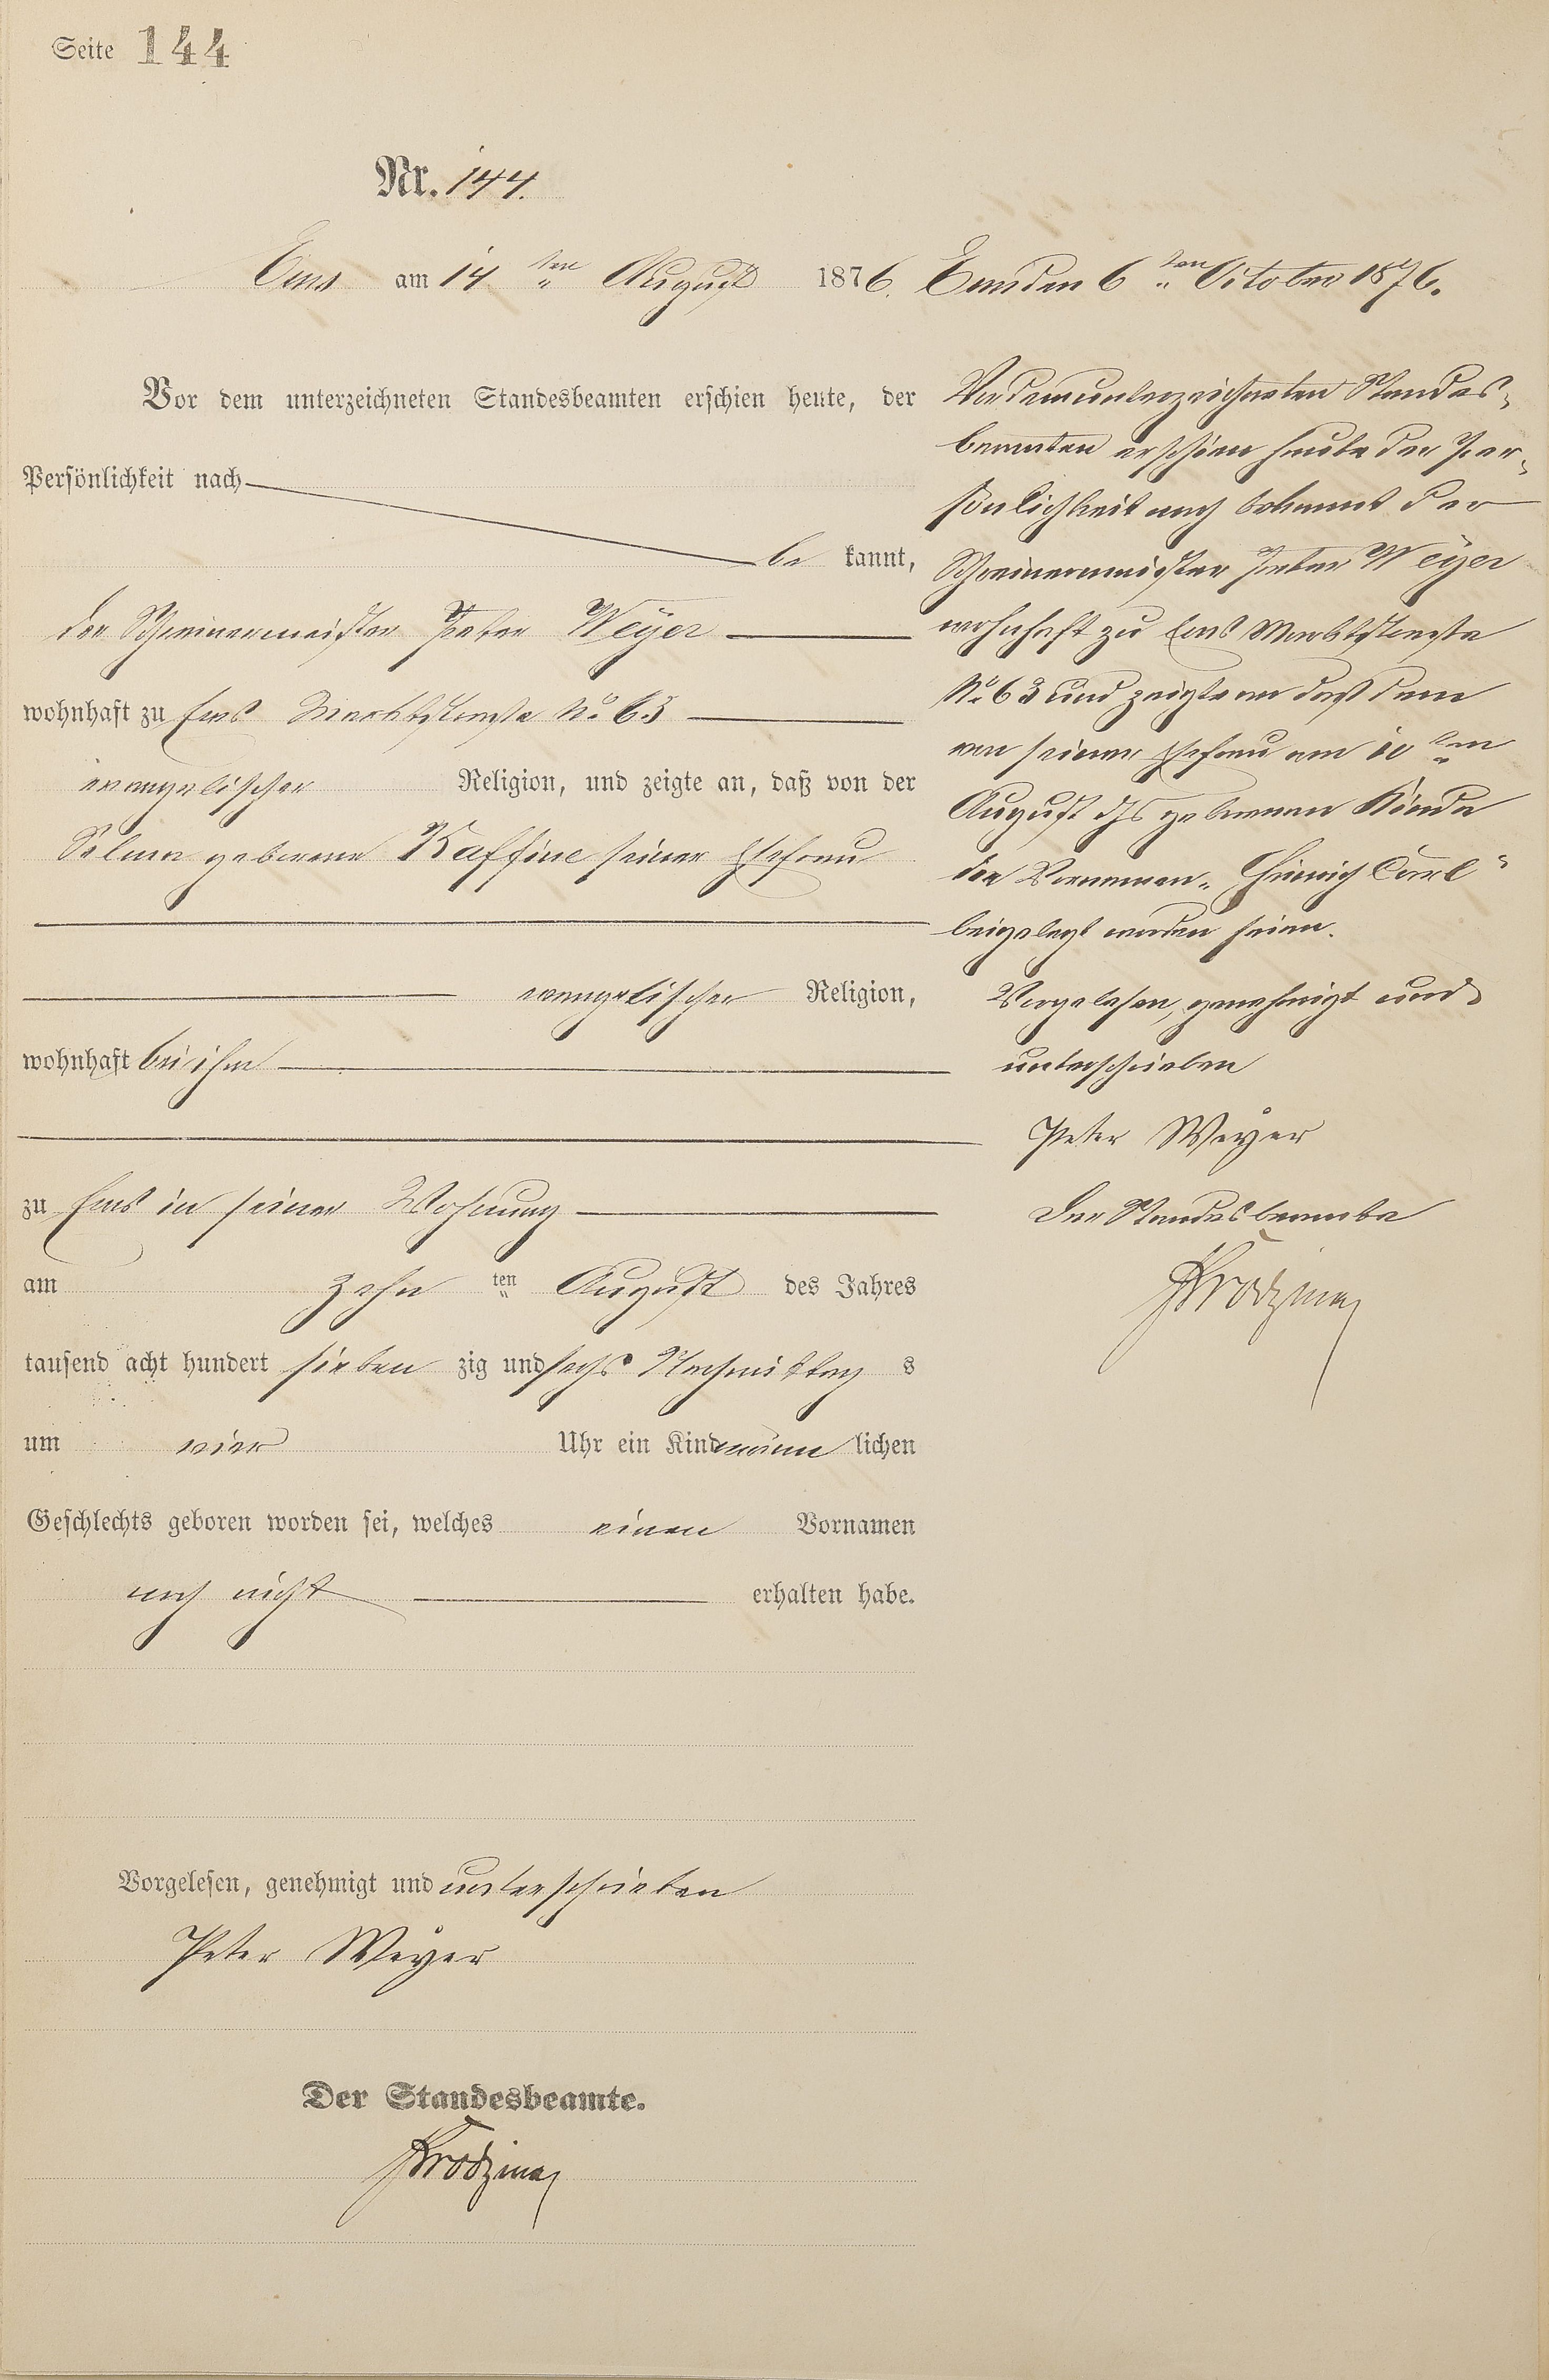 Seite 144
Nr. 144.
Ems am 14 ten August 1876.
Vor dem unterzeichneten Standesbeamten erschien heute, der
Persönlichkeit nach
be kannt,
der Schreinermeister Peter Weyer
wohnhaft zu Ems Marktstraße No 63
evangelischer Religion, und zeigte an, daß von der
Selma geborene Kaffine seiner Ehefrau
evangelischer Religion,
wohnhaft bei ihm
zu Ems in seiner Wohnung
am zehn ten August des Jahres
tausend acht hundert sieben zig und sechs Nachmittag s
um vier Uhr ein Kind männ lichen
Geschlechts geboren worden sei, welches einen Vornamen
noch nicht erhalten habe.
Vorgelesen, genehmigt und unterschrieben
Peter Weyer
Der Standesbeamte.
Ems den 6 ten October 1876.
Vor dem unterzeichneten Standes-
beamten erschien heute der Per-
sönlichkeit nach bekannt der
Schreinermeister Peter Weyer
wohnhaft zu Ems Marktstraße
No 63 und zeigte an daß dem
von seiner Ehefrau am 10 ten
August ds geborenen Kinde
die Vornamen „Heinrich Carl“
beigelegt worden seien.
Vorgelesen, genehmigt und
unterschrieben
Peter Weyer
Der Standesbeamte